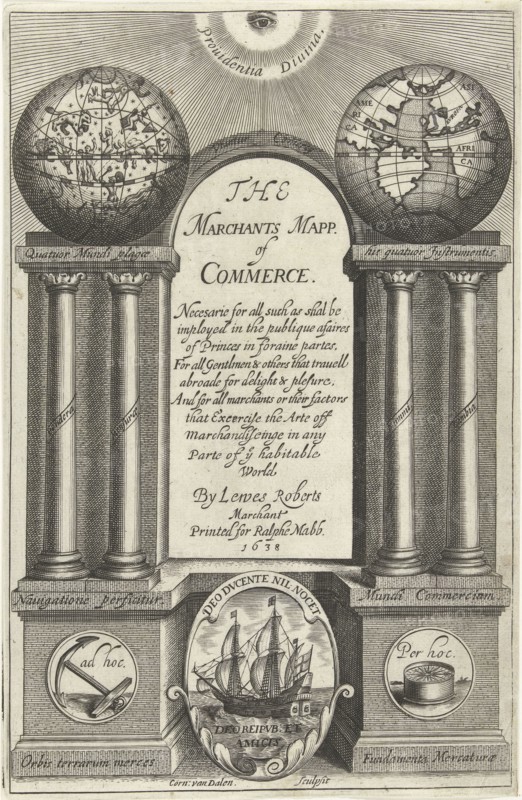 Providentia Divina.
AME
RI
CA
ASI
AFRI
CA
Quatuor Mundi plagæ
his quatuor Instrumentis,
THE
MARCHANTS MAPP.
of
COMMERCE.
Necesarie for all such as shal be
imployed in the publique afaires
of Princes in foraine partes,
For all Gentlmen & others that travell
abroade for delight & plesure,
And for all marchants or their factors
that Exercise the Arte off
Marchandiseinge in any
Parte of ÿ habitable
World
By Lewes Roberts
Marchant
Printed for Ralphe Mabb.
1638
Navigatione perficitur,
Mundi Commercium.
DEO DVCENTE NIL NOCET
ad hoc.
Per hoc.
DEO REIPVB. ET
AMICIS
Orbis terrarum merces
Fundamenta Mercaturæ
Corn: van Dalen. Sculpsit